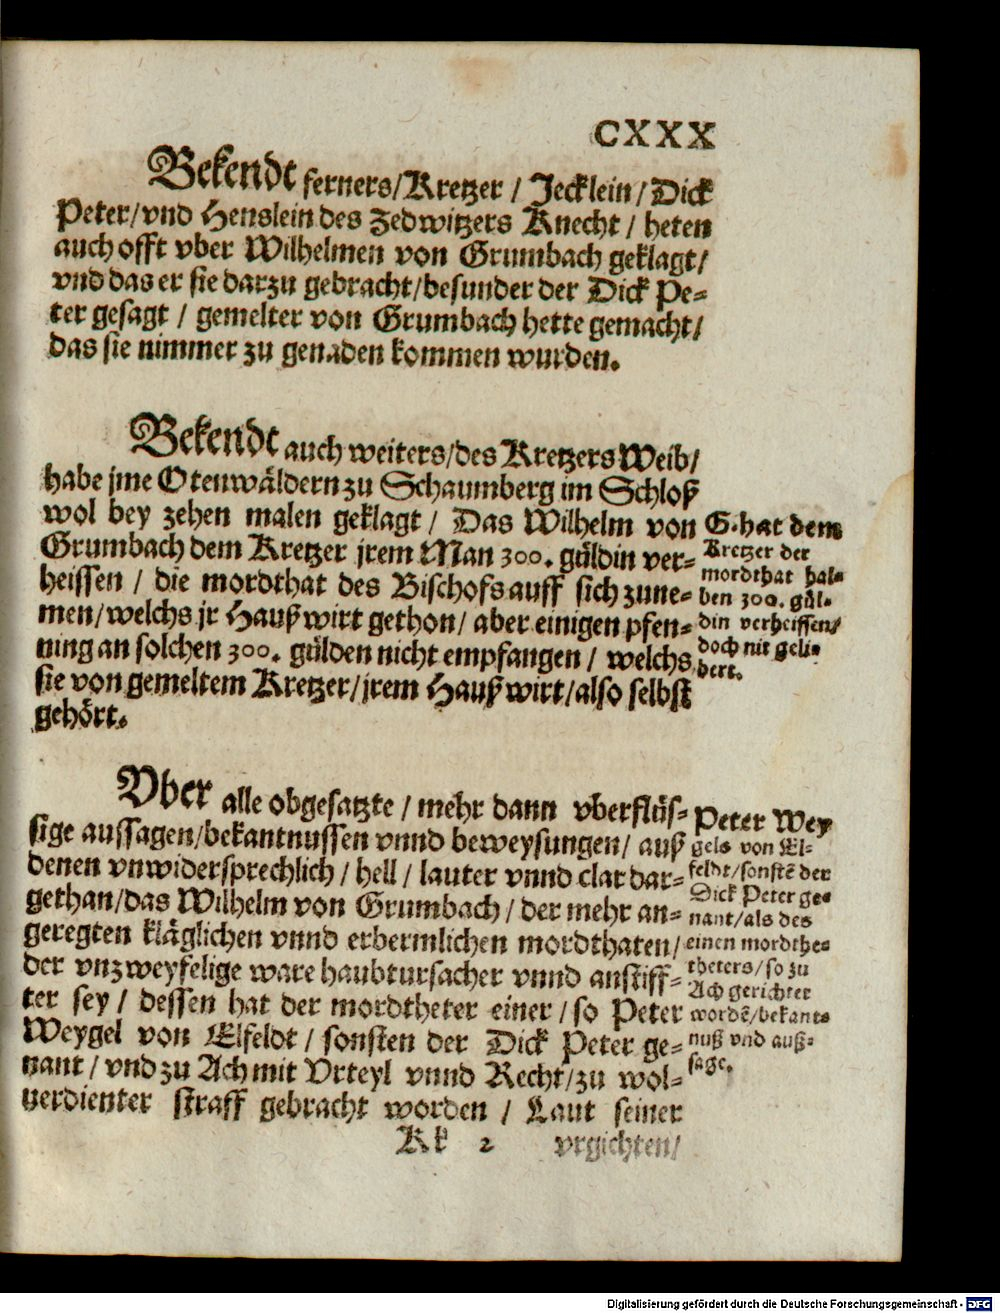 CXXX
Bekendt ferners/Kretzer / Jecklein/Dick
Peter/vnd Henslein des Zedwitzers Knecht / heten
auch offt vber Wilhelmen von Grumbach geklagt/
vnd das er sie darzu gebracht/besunder der Dick Pe-
ter gesagt / gemelter von Grumbach hette gemacht/
das sie nimmer zu genaden kommen wurden.
Bekendt auch weiters/des Kretzers Weib/
habe jme Otenwäldern zu Schaumberg im Schloß
wol bey zehen malen geklagt / Das Wilhelm von
Grumbach dem Kretzer jrem Man 300. güldin ver-
heissen / die mordthat des Bischofs auff sich zune-
men/welchs jr Haußwirt gethon/ aber einigen pfen-
ning an solchen 300. gülden nicht empfangen / welchs
sie von gemeltem Kretzer/jrem Haußwirt/also selbst
gehört.
G. hat dem
Kretzer der
mordthat hal-
ben 300. gül-
din verheissen/
doch nit geli-
bert.
Vber alle obgesatzte / mehr dann vberflüs-
sige aussagen/bekantnussen vnnd beweysungen/ auß
denen vnwidersprechlich / hell / lauter vnnd clar dar-
gethan/das Wilhelm von Grumbach / der mehr an-
geregten kläglichen vnnd erbermlichen mordthaten/
der vnzweyfelige ware haubtursacher vnnd anstiff-
ter sey / dessen hat der mordtheter einer / so Peter
Weygel von Elfeldt / sonsten der Dick Peter ge-
nant / vnd zu Ach mit Vrteyl vnnd Recht/zu wol-
uerdienter straff gebracht worden / Laut seiner
Peter Wey
gels von El-
feldt/sonstē der
Dick Peter ge-
nant/als des
einen mordthe-
theters/so zu
Ach gerichter
wordē/bekant-
nuß vnd auß-
sage.
Kk 2 vrgichten/
Digitalisierung gefördert durch die Deutsche Forschungsgemeinschaft - DFG